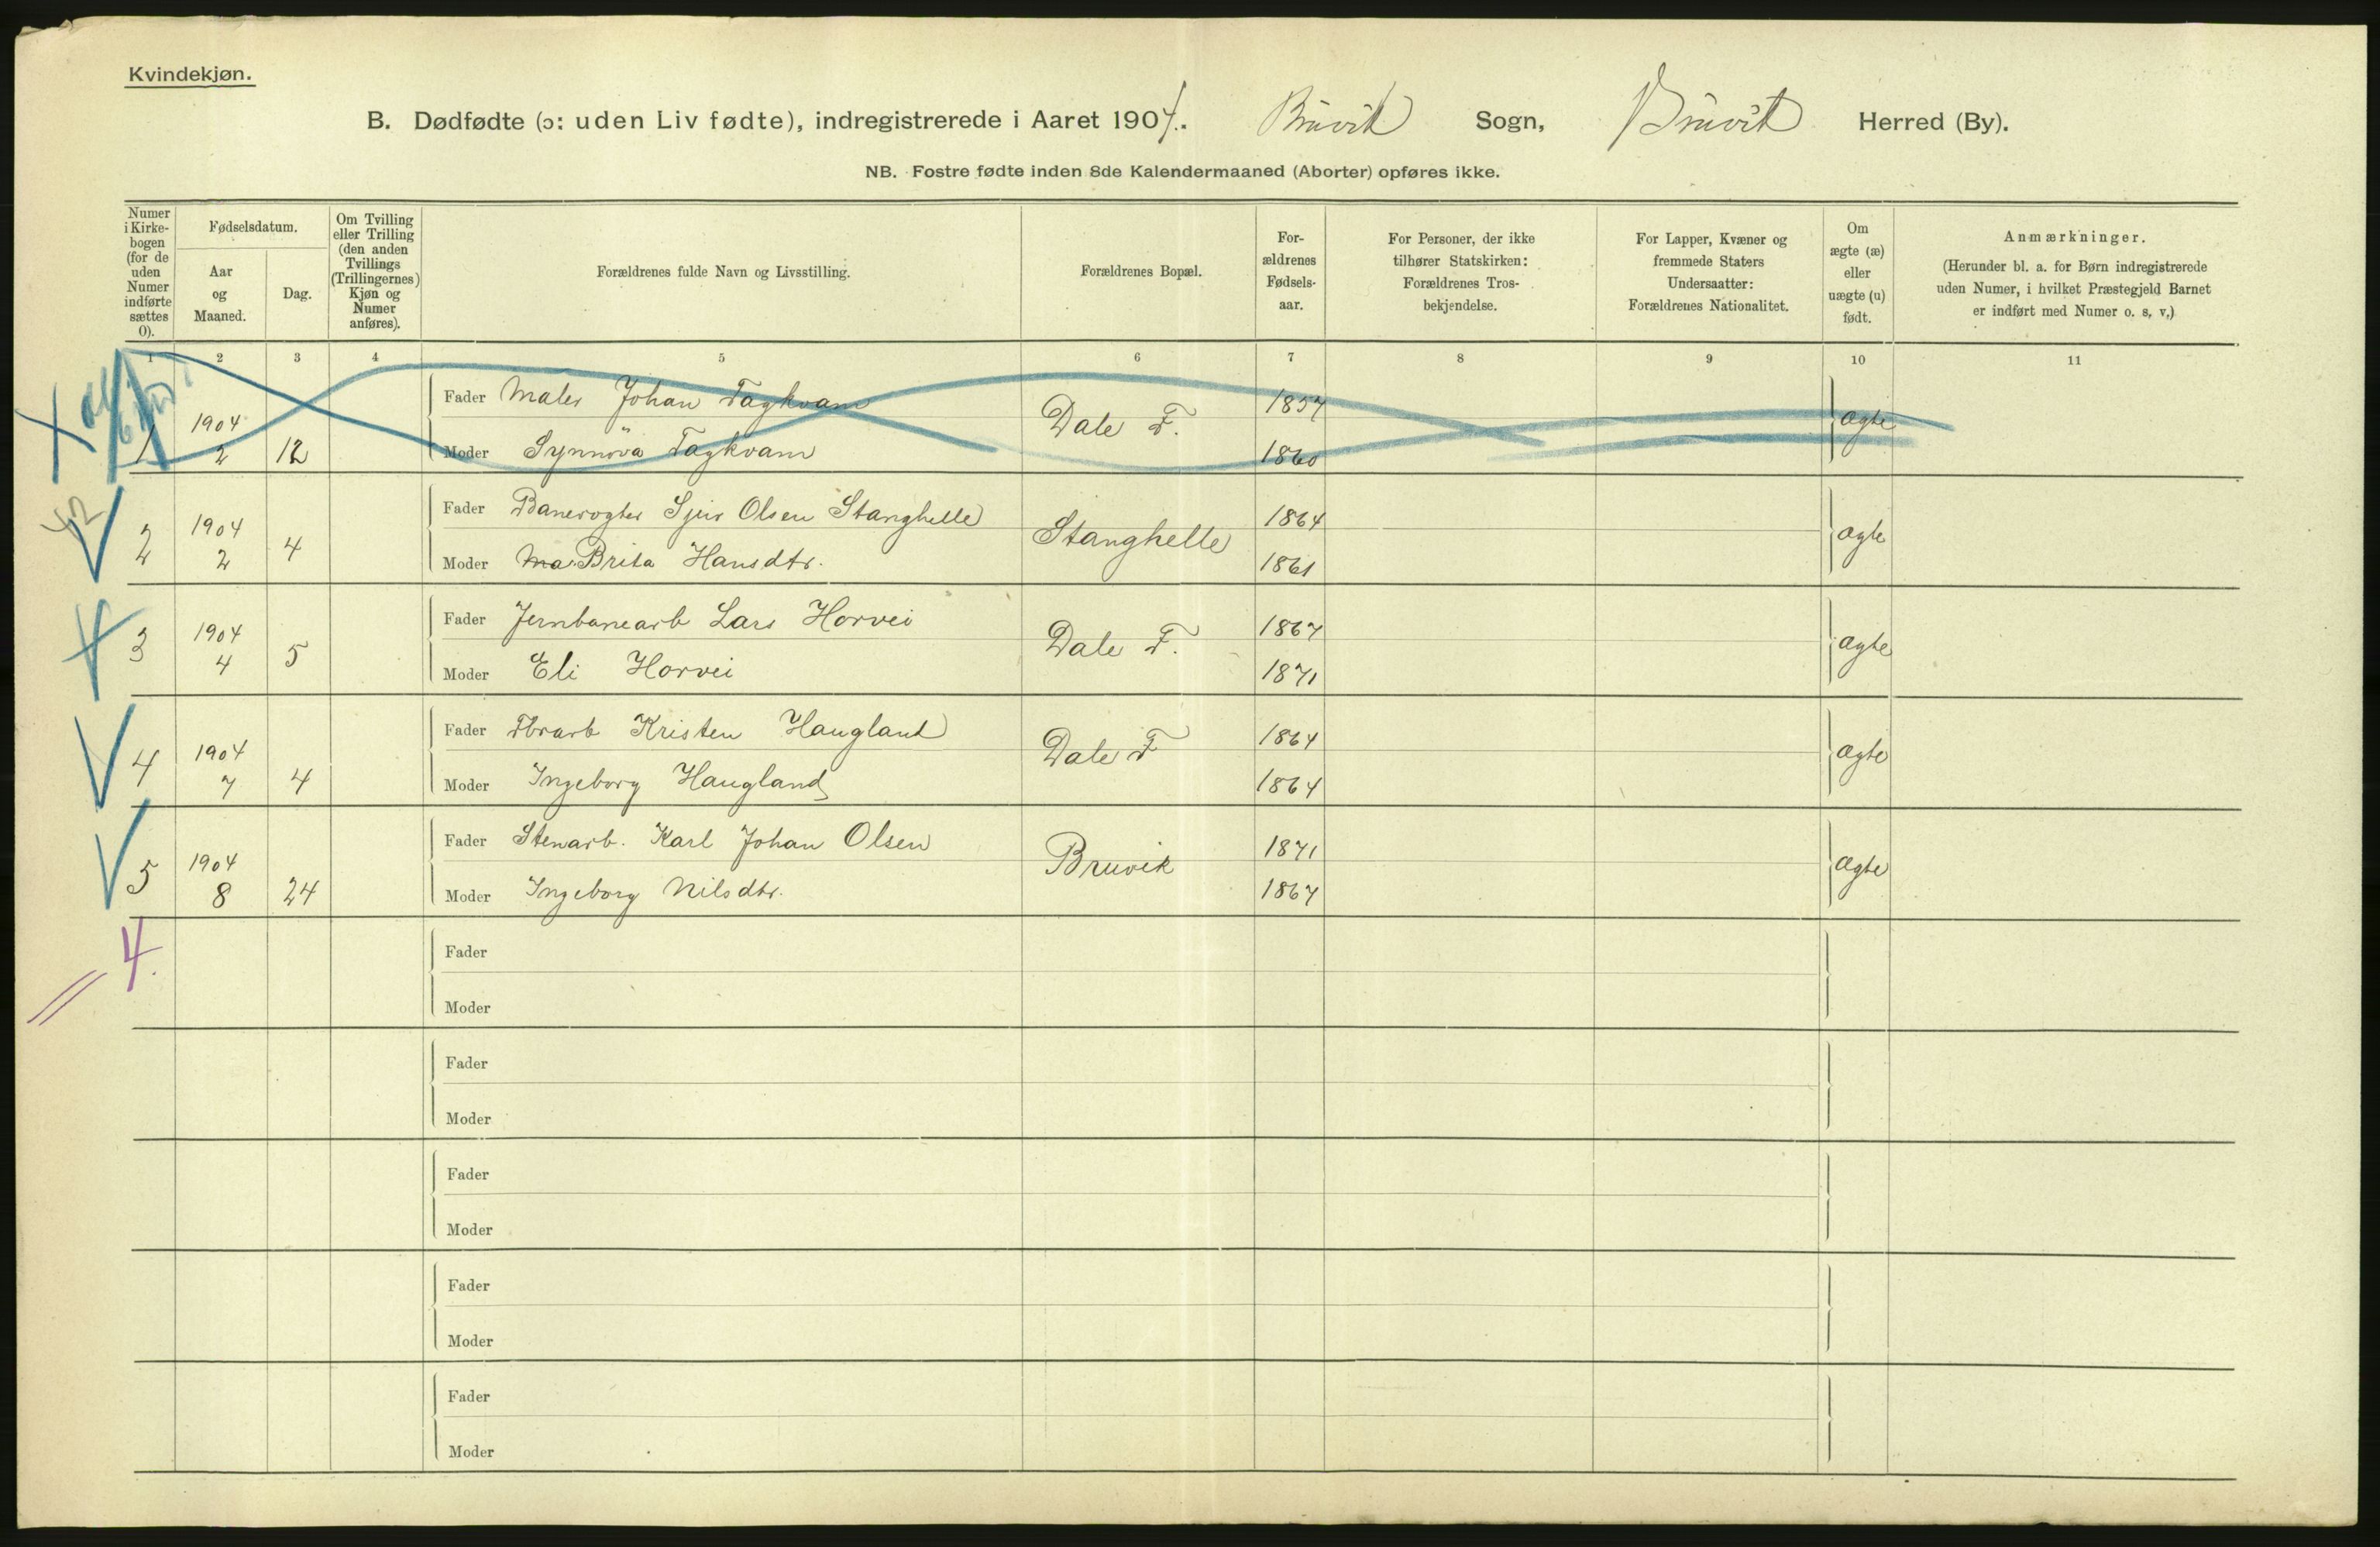 Kvindekjøn.
B. Dødfødte (ɔ: uden Liv fødte), indregistrerede i Aaret 1904. Bruvik Sogn, Bruvik Herred (By).
NB. Fostre fødte inden 8de Kalendermaaned (Aborter) opføres ikke.
Numer i Kirkebogen (for de uden Numer indførte sættes 0).
Fødselsdatum.
Aar og Maaned.
Dag.
Om Tvilling eller Trilling (den anden Tvillings (Trillingernes) Kjøn og Numer anføres).
Forældrenes fulde Navn og Livsstilling.
Forældrenes Bopæl.
Forældrenes Fødselsaar.
For Personer, der ikke tilhører Statskirken: Forældrenes Trosbekjendelse.
For Lapper, Kvæner og fremmede Staters Undersaatter: Forældrenes Nationalitet.
Om ægte (æ) eller uægte (u) født.
Anmærkninger.
(Herunder bl. a. for Børn indregistrerede uden Numer, i hvilket Præstegjeld Barnet er indført med Numer o. s. v.)
1 2 3 4 5 6 7 8 9 10 11
1 1904 2 12 Fader Maler Johan Fagkvam Dale F. 1857 ægte
Moder Synnöva Fagkvam 1860
2 1904 2 4 Fader Banevogter Sjur Olsen Stanghelle Stanghelle 1864 ægte
Moder Ma Brita Hansdtr. 1861
3 1904 4 5 Fader Jernbanearb Lars Horvei Dale F. 1867 ægte
Moder Eli Horvei 1871
4 1904 7 4 Fader Fbrarb Kristen Haugland Dale F 1864 ægte
Moder Ingeborg Haugland 1864
5 1904 8 24 Fader Stenarb. Karl Johan Olsen Bruvik 1871 ægte
Moder Ingeborg Nilsdtr. 1867
4.
Fader
Moder
Fader
Moder
Fader
Moder
Fader
Moder
Fader
Moder